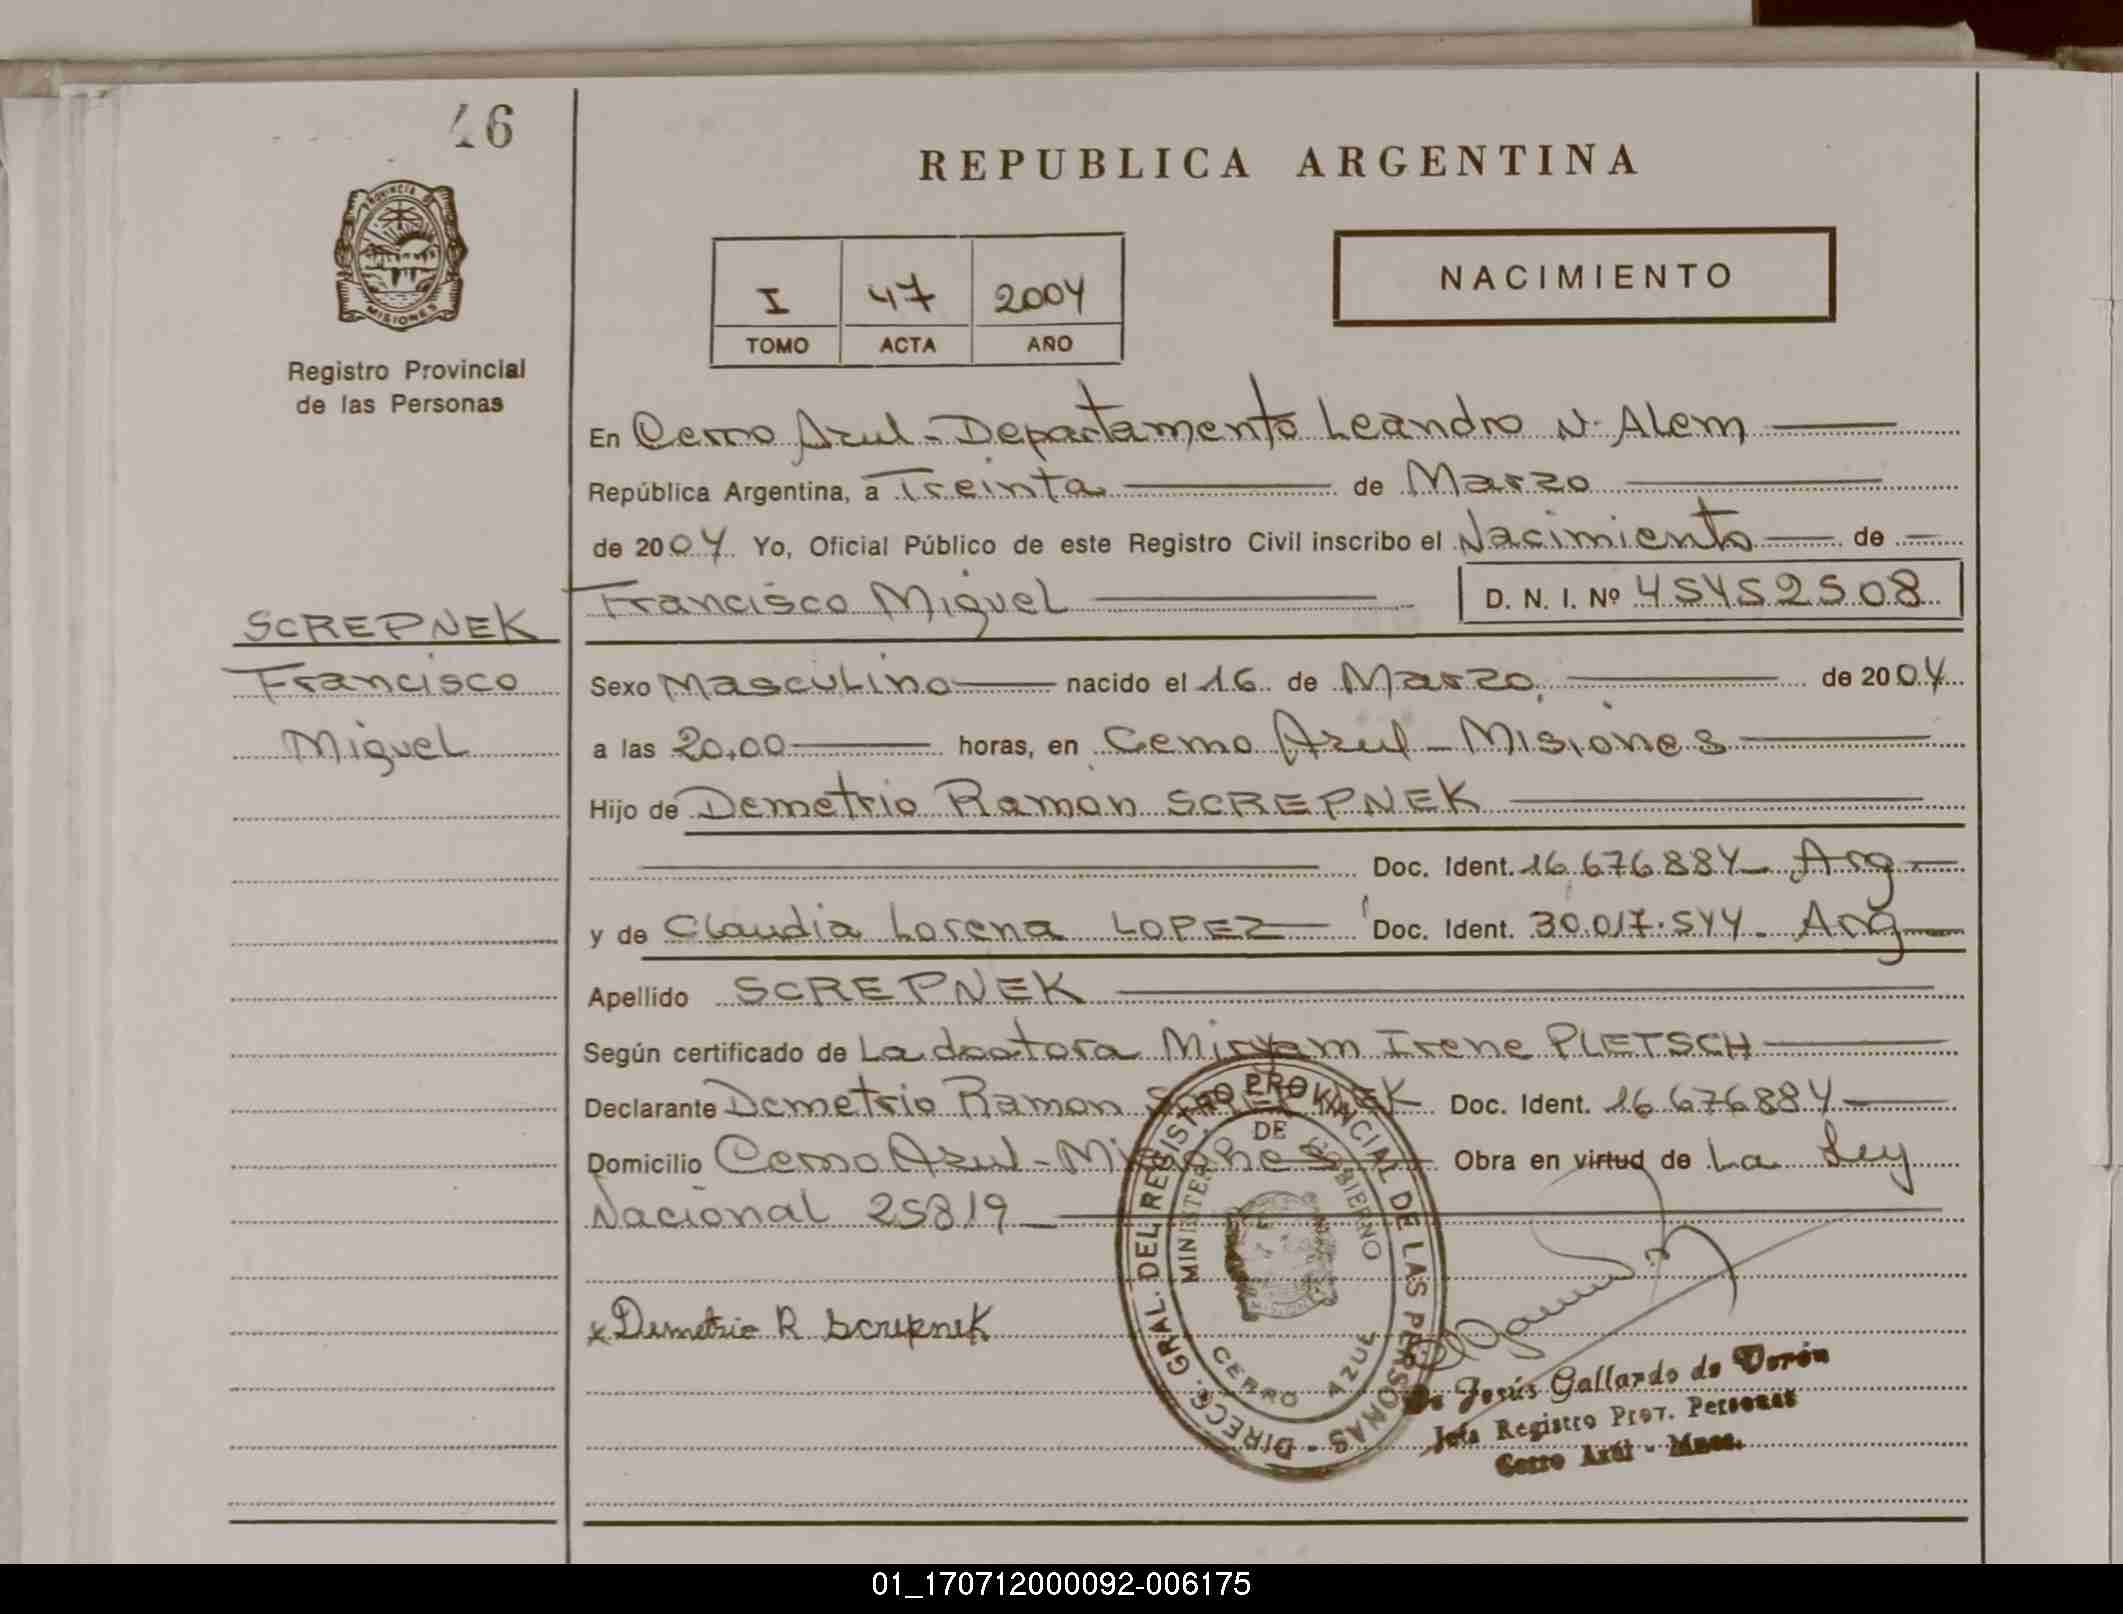 46
REPUBLICA ARGENTINA
PROVINCIA DE
MISIONES
Registro Provincial
de las Personas
I 47 2004
TOMO ACTA AÑO
NACIMIENTO
En Cerro Azul - Departamento Leandro N. Alem
República Argentina, a Treinta de Marzo
de 2004 Yo, Oficial Público de este Registro Civil inscribo el Nacimiento de
Francisco Miguel D. N. I. Nº 45452508
SCREPNEK
Francisco
Miguel
Sexo Masculino nacido el 16 de Marzo de 2004
a las 20,00 horas, en Cerro Azul - Misiones
Hijo de Demetrio Ramon SCREPNEK
Doc. Ident. 16.676.884 - Arg
y de Claudia Lorena LOPEZ Doc. Ident. 30.017.544 - Arg
Apellido SCREPNEK
Según certificado de La doctora Miryam Irene PLETSCH
Declarante Demetrio Ramon SCREPNEK Doc. Ident. 16.676.884
Domicilio Cerro Azul - Misiones Obra en virtud de La Ley
Nacional 25819
x Demetrio R Screpnek
DIRECC. GRAL. DEL REGISTRO PROVINCIAL DE LAS PERSONAS
MINISTERIO DE GOBIERNO
CERRO AZUL
de Jesús Gallardo de Verón
Jefa Registro Prov. Personas
Cerro Azul - Mnes.
01_170712000092-006175